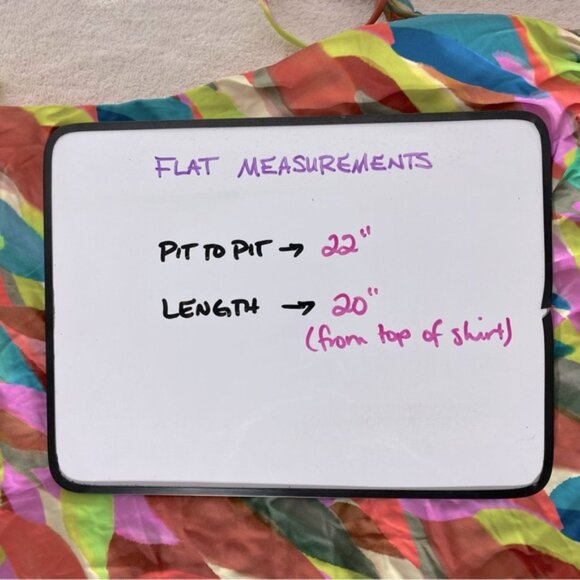 FLAT MEASUREMENTS
PIT TO PIT → 22"
LENGTH → 20"
(from top of shirt)